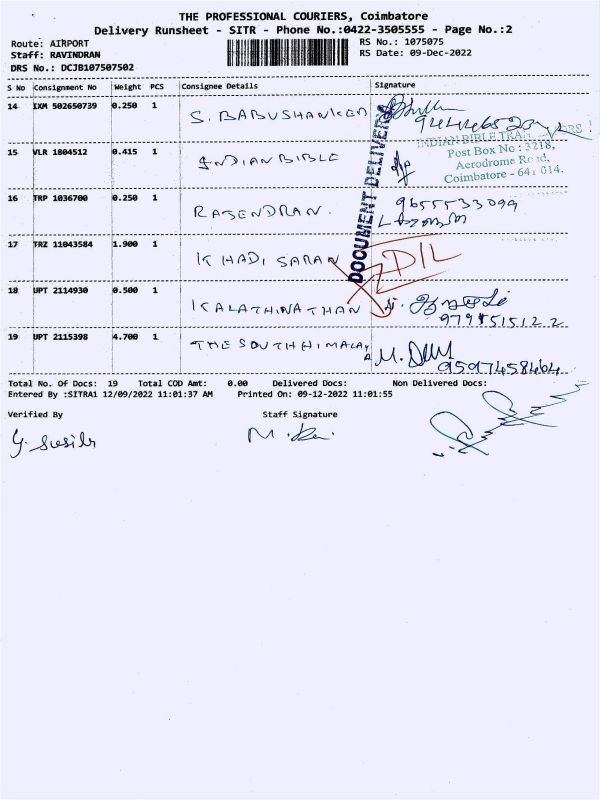 THE PROFESSIONAL COURIERS, Coimbatore
Delivery Runsheet - SITR - Phone No.:0422-3505555 - Page No.:2
Route: AIRPORT RS No.: 1075075
Staff: RAVINDRAN RS Date: 09-Dec-2022
DRS No.: DCJB107507502
S No Consignment No Weight PCS Consignee Details Signature
14 IXM 502650739 0.250 1 S. BABUSHANKER
DOCUMENT DELIVERY
INDIAN BIBLE
15 VLR 1804512 0.415 1 INDIAN BIBLE
Post Box No : 3218,
Aerodrome Road,
Coimbatore - 641 014.
16 TRP 1036700 0.250 1 RAJENDRAN. 9655533099
17 TRZ 11043584 1.900 1 KHADI SARAN
18 UPT 2114930 0.500 1 KALATHINATHAN
9791515122
19 UPT 2115398 4.700 1 THE SOUTH HIMALAYA
9597458464
Total No. Of Docs: 19 Total COD Amt: 0.00 Delivered Docs: Non Delivered Docs:
Entered By :SITRA1 12/09/2022 11:01:37 AM Printed On: 09-12-2022 11:01:55
Verified By Staff Signature